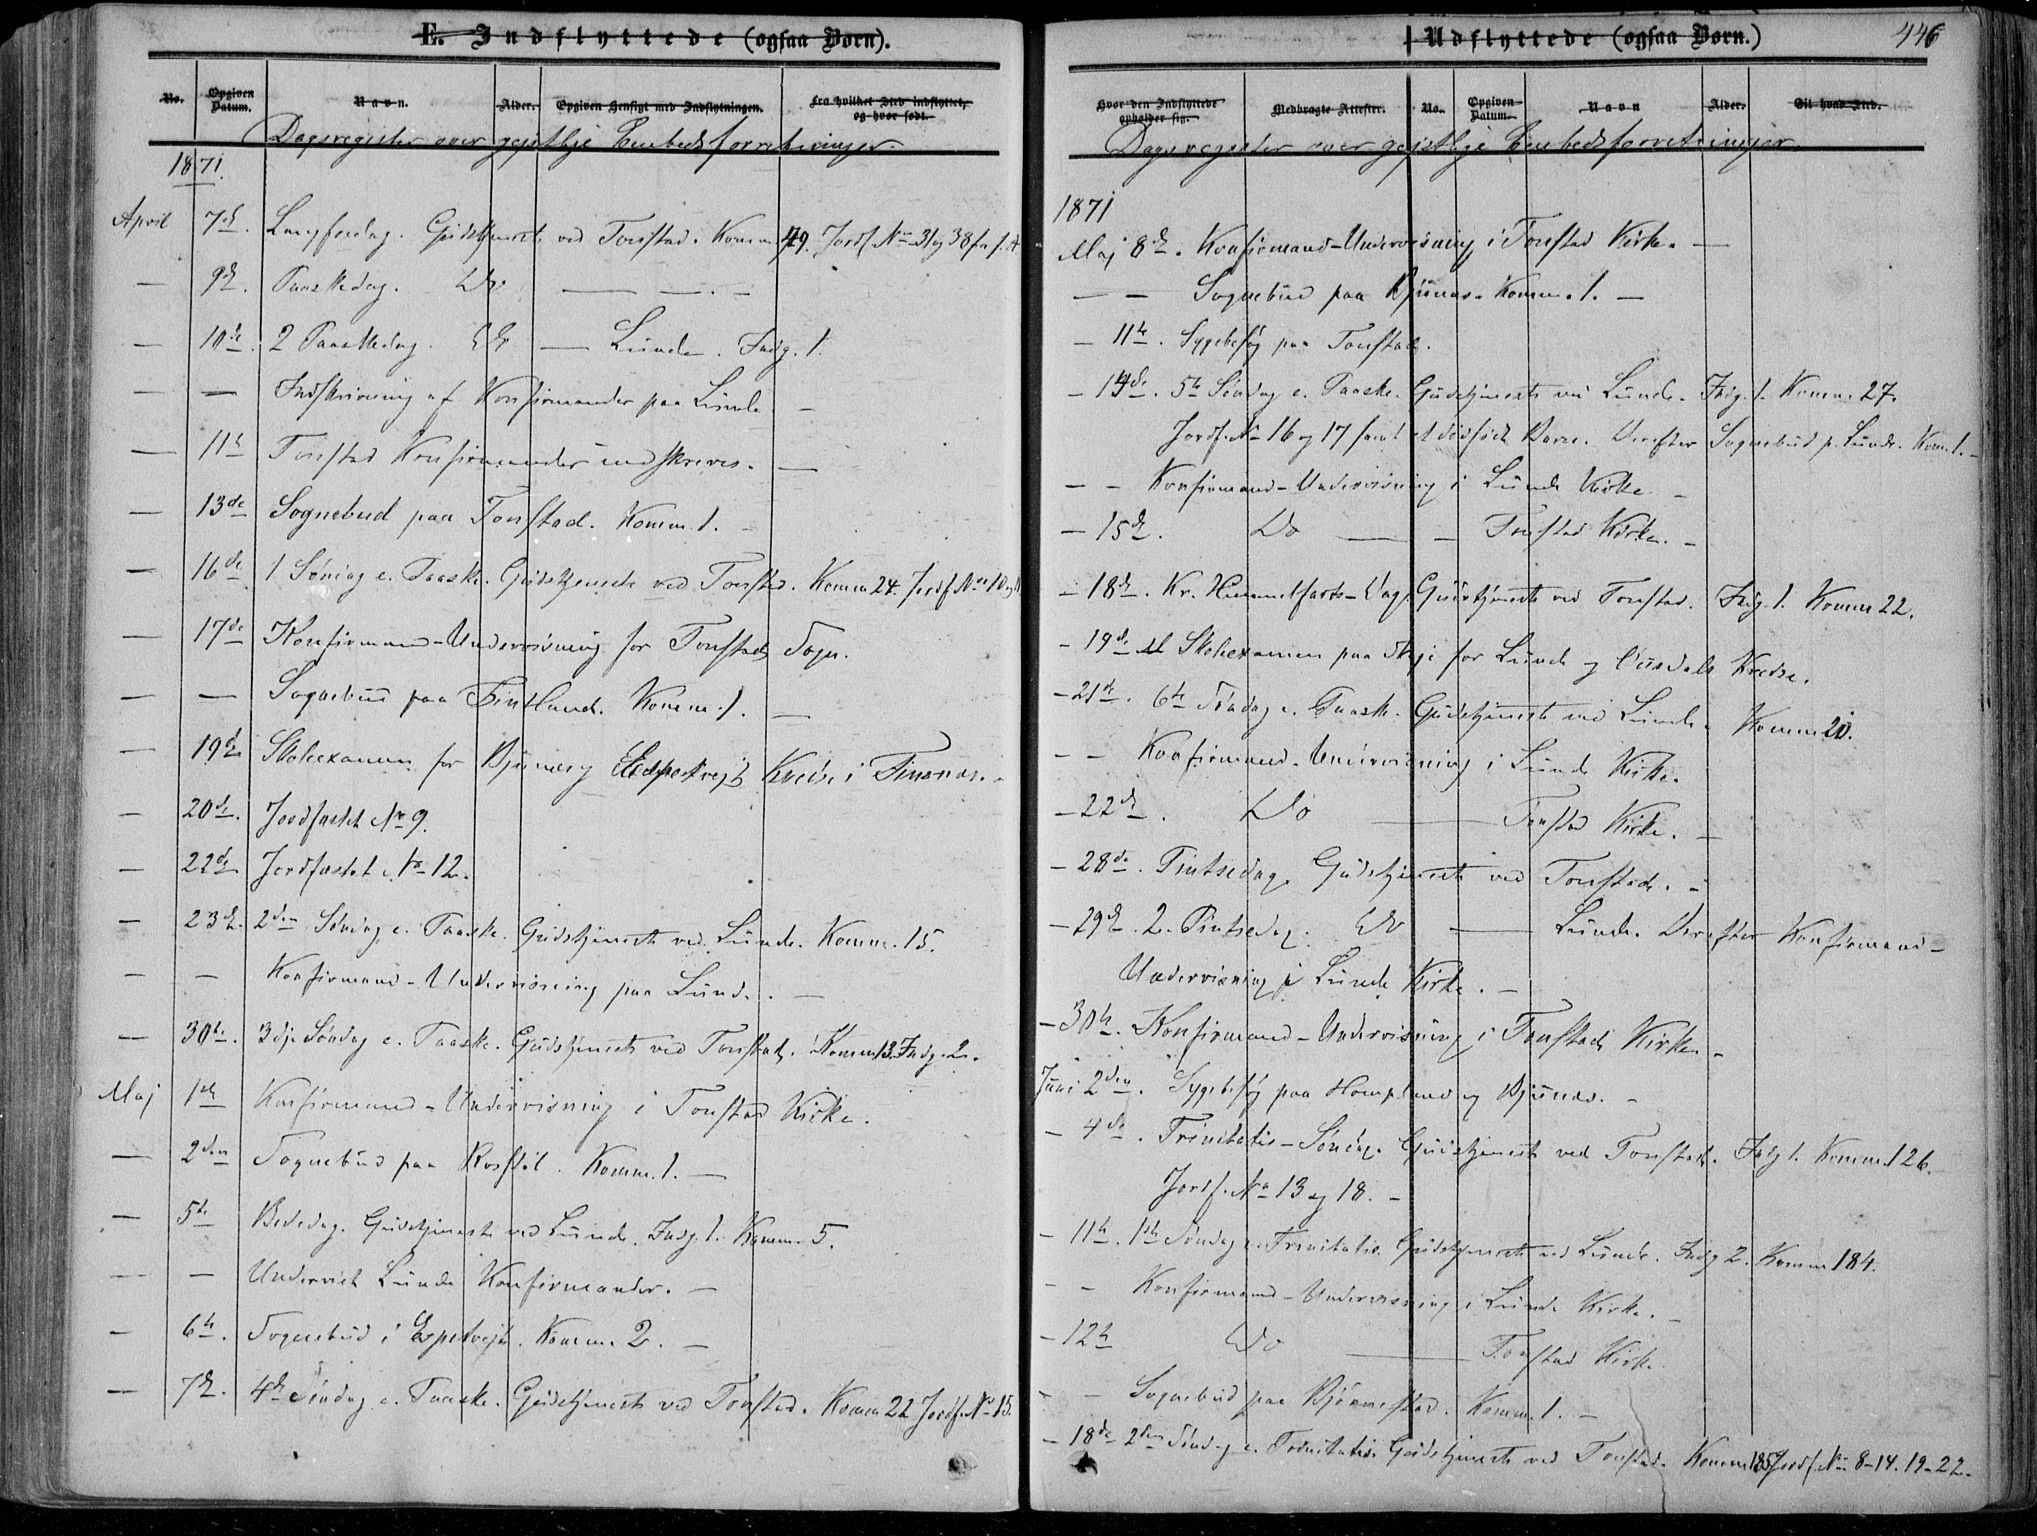 E. Indflyttede (ogsaa Børn).
No.
Opgiven Datum.
Navn.
Alder.
Opgiven Hensigt med Indflytningen.
Fra hvilket Sted indflyttet, og hvor født.
Dagsregister over gejstlige Embedsforretninger.
1871.
April 7de. Langfredag. Gudstjeneste ved Tonstad. Komm. 49. Jordf. No 3 og 38 fra f. A.
— 9de. Paaskedag. Do — — . —
— 10de. 2 Paaskedag. Do — Lunde. Indg. 1.
— — Indskrivning af Konfirmander paa Lunde. —
— 11te Tonstad Konfirmander indskreves. —
— 13de Sognebud paa Tonstad. Komm. 1. —
— 16de 1 Søndag e. Paaske. Gudstjeneste ved Tonstad. Komm 24. Jordf. No 10 og 11
— 17de Konfirmand-Undervisning for Tonstad Sogn.
— — Sognebud paa Fintland. Komm. 1. —
— 19de Skoleexamen for Bjunes og Espetvejt Kredse i Finsnæs. —
— 20de. Jordfæstet No 9.
— 22de Jordfæstet No 12.
— 23de. 2den Søndag e. Paaske. Gudstjeneste ved Lunde. Komm. 15.
— — Konfirmand-Undervisning paa Lunde. —
— 30te. 3dje Søndag e. Paaske. Gudstjeneste ved Tonstad. Komm 13. Indg. 2.
Maj 1ste Konfirmand-Undervisning i Tonstad Kirke.
— 2den Sognebud paa Rosstøl. Komm. 1. —
— 5te Bededag. Gudstjeneste ved Lunde. Indg. 1. Komm. 5.
— — Undervist Lunde Konfirmander. —
— 6te. Sognebud i Espetvejt. Komm. 2. —
— 7de. 4de Søndag e. Paaske. Gudstjeneste ved Tonstad. Komm 22 Jordf. No 15.
Udflyttede (ogsaa Børn.)
446
Hvor den Indflyttede opholder sig.
Medbragte Attester.
No.
Opgiven Datum.
Navn
Alder.
Til hvad Sted.
Dagsregister over gejstlige Embedsforretninger.
1871
Maj 8de. Konfirmand-Undervisning i Tonstad Kirke. —
— — Sognebud paa Bjunes. Komm. 1. —
— 11te. Sygebesøg paa Tonstad.
— 14de. 5te Søndag e. Paaske. Gudstjeneste ved Lunde. Indg. 1. Komm. 27.
Jordf. No 16 og 17 samt et dødfødt Barn. Derefter Sognebud p. Lunde. Kom. 1. —
— — Konfirmand-Undervisning i Lunde Kirke. —
— 15de. Do — — Tonstad Kirke. —
— 18de. Kr. Himmelfarts-Dag. Gudstjeneste ved Tonstad. Indg. 1. Komm 22.
— 19de Skoleexamen paa Haje for Lunde og Ousdals Kredse.
— 21de. 6te Søndag e. Paaske. Gudstjeneste ved Lunde. Komm 20.
— — Konfirmand-Undervisning i Lunde Kirke.
— 22de. Do — Tonstad Kirke. —
— 28de. Pintsedag. Gudstjeneste ved Tonstad. —
— 29de. 2. Pintsedag. Do — Lunde. Derefter Konfirmand-
Undervisning i Lunde Kirke. —
— 30te. Konfirmand-Undervisning i Tonstad Kirke. —
Juni 2den. Sygebesøg paa Hompland og Bjunes. —
— 4de. Trinitatis-Søndag. Gudstjeneste ved Tonstad. Indg 1. Komm. 126.
Jordf. No 13 og 18. —
— 11te. 1ste Søndag e. Trinitatis. Gudstjeneste ved Lunde. Indg 2. Komm 184.
— Konfirmand-Undervisning i Lunde Kirke. —
— 12te Do — Tonstad Kirke.
— — Sognebud paa Bjørnestad. Komm. 1. —
— 18de 2den Søndag e. Trinitatis. Gudstjeneste ved Tonstad. Komm 185 Jordf. No 8-14. 19-22.